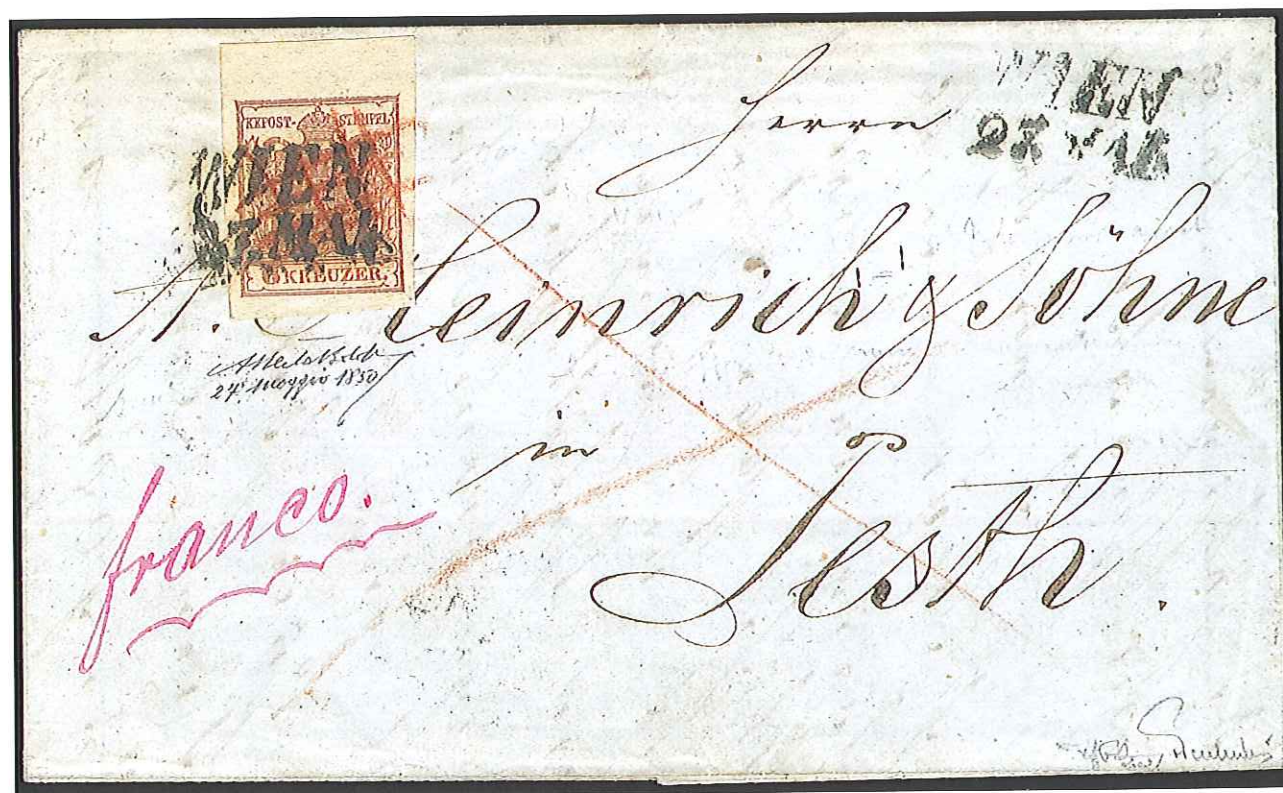 KKPOST-STEMPEL
WIEN
KREUZER.
WIEN
Herrn
A. Heinrich & Söhne
24 Maggio 1850
in
Pesth.
franco.